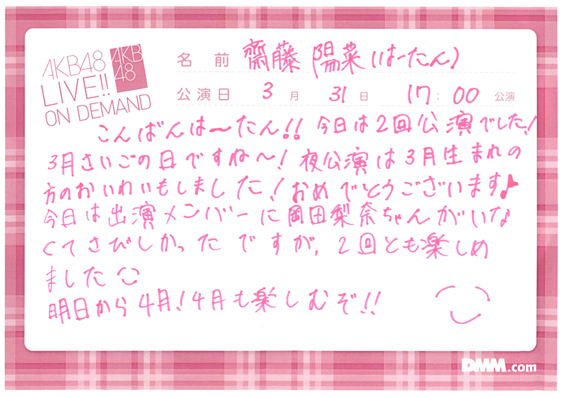 AKB48
LIVE!!
ON DEMAND
AKB
48
名前 齋藤 陽菜(はーたん)
公演日 3月31日 17:00公演
こんばんは〜たん!! 今日は2回公演でした!
3月さいごの日ですね〜! 夜公演は3月生まれの
方のおいわいもしました! おめでとうございます♪
今日は出演メンバーに岡田梨奈ちゃんがいな
くてさびしかったですが、2回とも楽しめ
ました
明日から4月! 4月も楽しむぞ!!
DMM.com